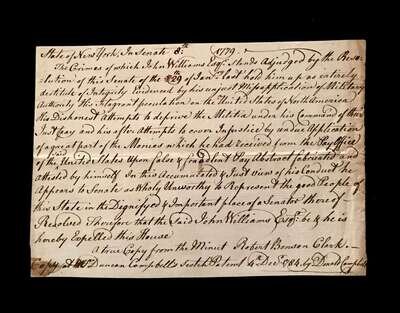 State of New York, In Senate 8th 1779
The Crimes of which John Williams Esqr. stands Adjudged by the Reso=
lution of this Senate of the 29 of Jany. last hold him up as entirely
destitute of Integrity Evidenced by his unjust Misapplication of Military
Authority his flagrant peculation on the United States of North America
his Dishonest Attempts to defraud the Militia under his Command of their
Just Pay and his after Attempts to cover Injustice by undue Application
of a great part of the Monies which he had received from the Pay Office
of the United States Upon false & Pay Abstract fabricated and
attested by himself In this Accumulated & Just View of his Conduct he
Appears to Senate as Wholy Unworthy to Represent the good People of
his State in the Dignifyed & Important place of a Senator there of
Resolved Therefore that the Said John Williams Esqr. be & he is
hereby Expelled this House
a true Copy from the Minut Robert Benson Clark
Copy at Duncan Campbells Scotch Patent 4th Decr. 1784 by Donald Campbell